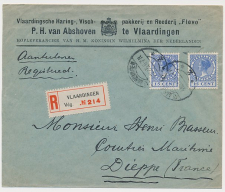 Vlaardingsche Haring-, Visch- pakkerij en Reederij „Flevo"
P. H. van Abshoven te Vlaardingen
HOFLEVERANCIER VAN H. M. KONINGIN WILHELMINA DER NEDERLANDEN
Aantekenen
Registered.
R VLAARDINGEN
№ 214
Monsieur Henri Brasseur
Comtes Maritime
Dieppe (France)